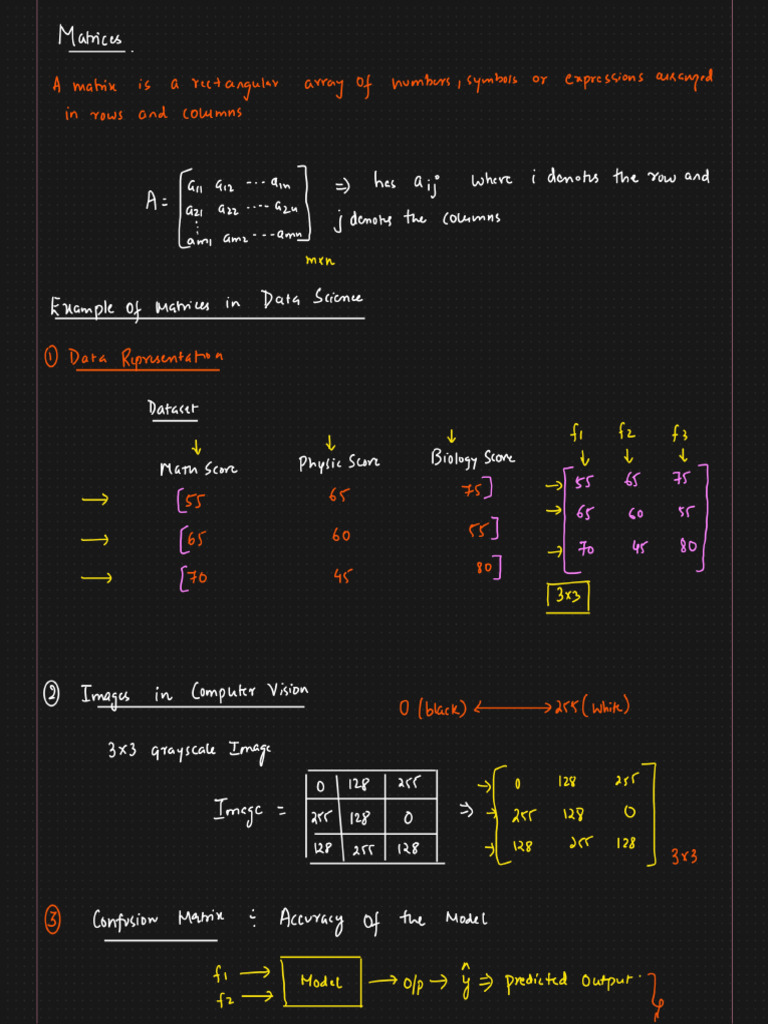 Matrices.
A matrix is a rectangular array of numbers, symbols or expressions arranged
in rows and columns
A = [a11 a12 ... a1n
a21 a22 .... a2n
⋮
am1 am2 ... amn] m×n
⇒ has aij where i denotes the row and
j denotes the columns
Example of Matrices in Data Science
① Data Representation
Dataset
f1 f2 f3
Math Score Physic Score Biology Score
[55 65 75] [55 65 75
[65 60 55] 65 60 55
[70 45 80] 70 45 80]
3×3
② Images in Computer Vision
0 (black) ⟷ 255 (white)
3×3 grayscale Image
Image =
0 128 255
255 128 0
128 255 128
⇒
[0 128 255
255 128 0
128 255 128] 3×3
③ Confusion Matrix ÷ Accuracy of the Model
f1 →
f2 →
Model → O/p → ŷ ⇒ Predicted Output.